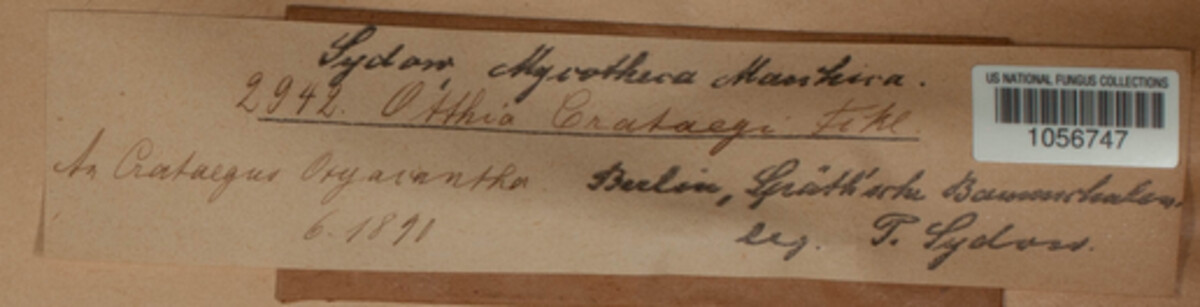 Sydow, Mycotheca Marchica.
2942. Otthia Crataegi Fckl.
An Crataegus Oxyacantha. Berlin, Späth'sche Baumschulen.
6. 1891 leg. P. Sydow.
US NATIONAL FUNGUS COLLECTIONS
1056747